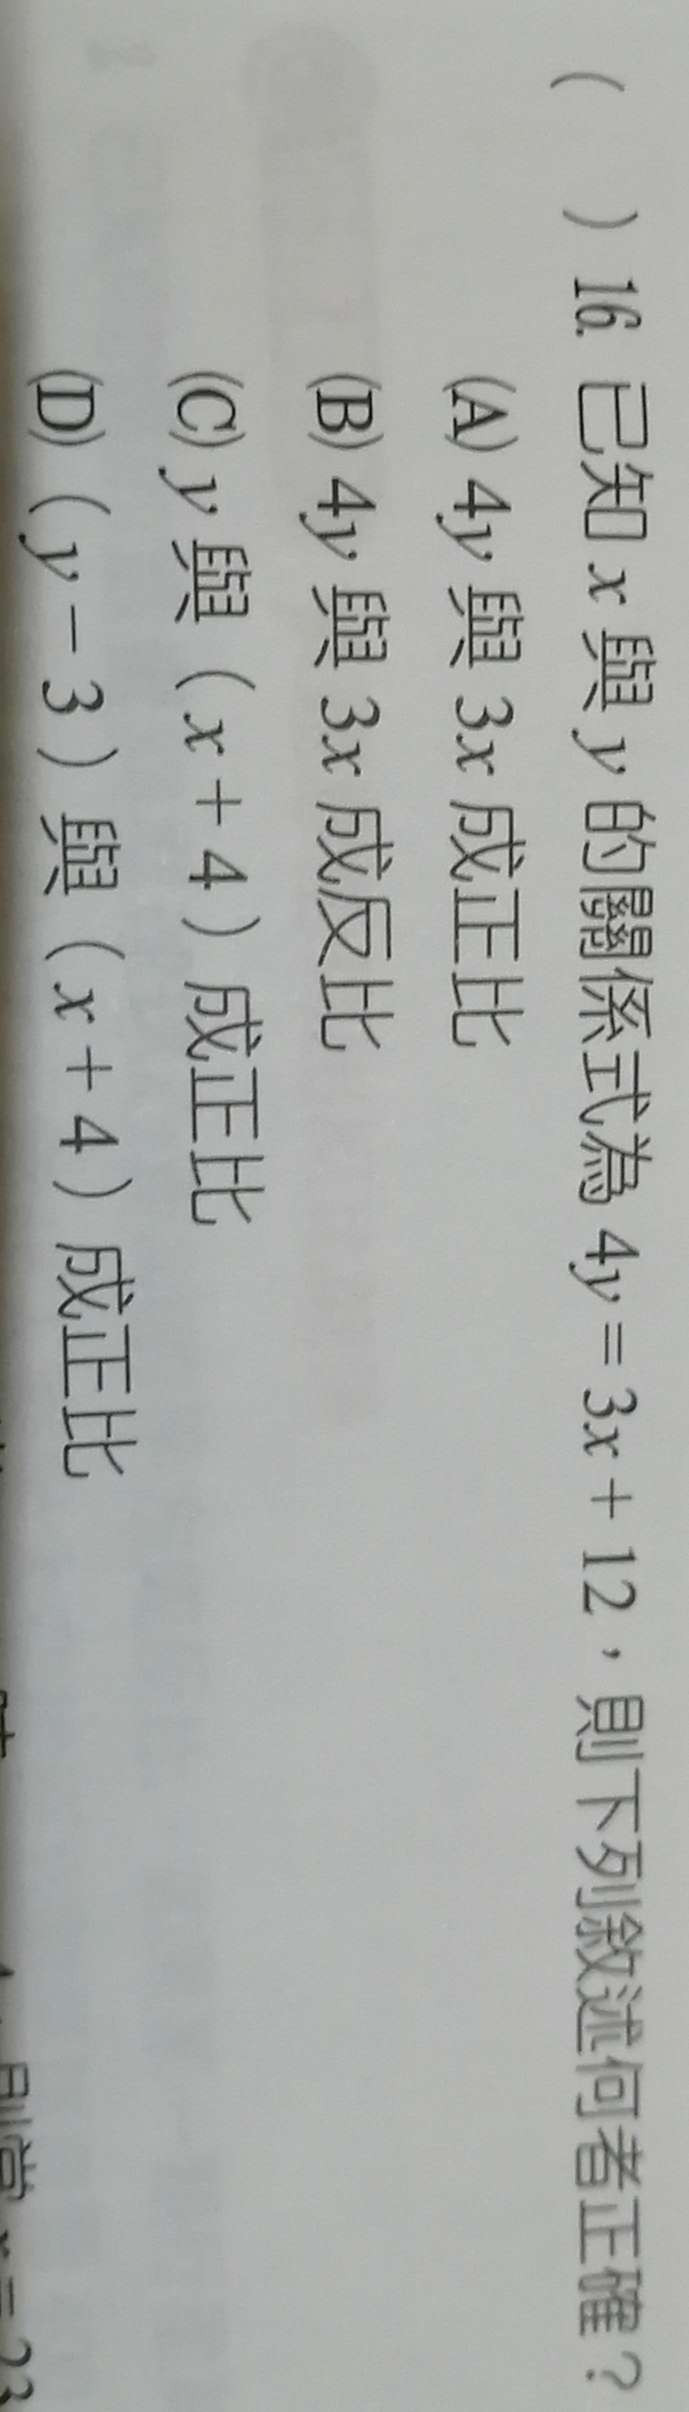 (　) 16. 已知 x 與 y 的關係式為 4y = 3x + 12，則下列敘述何者正確？
(A) 4y 與 3x 成正比
(B) 4y 與 3x 成反比
(C) y 與（x + 4）成正比
(D)（y − 3）與（x + 4）成正比